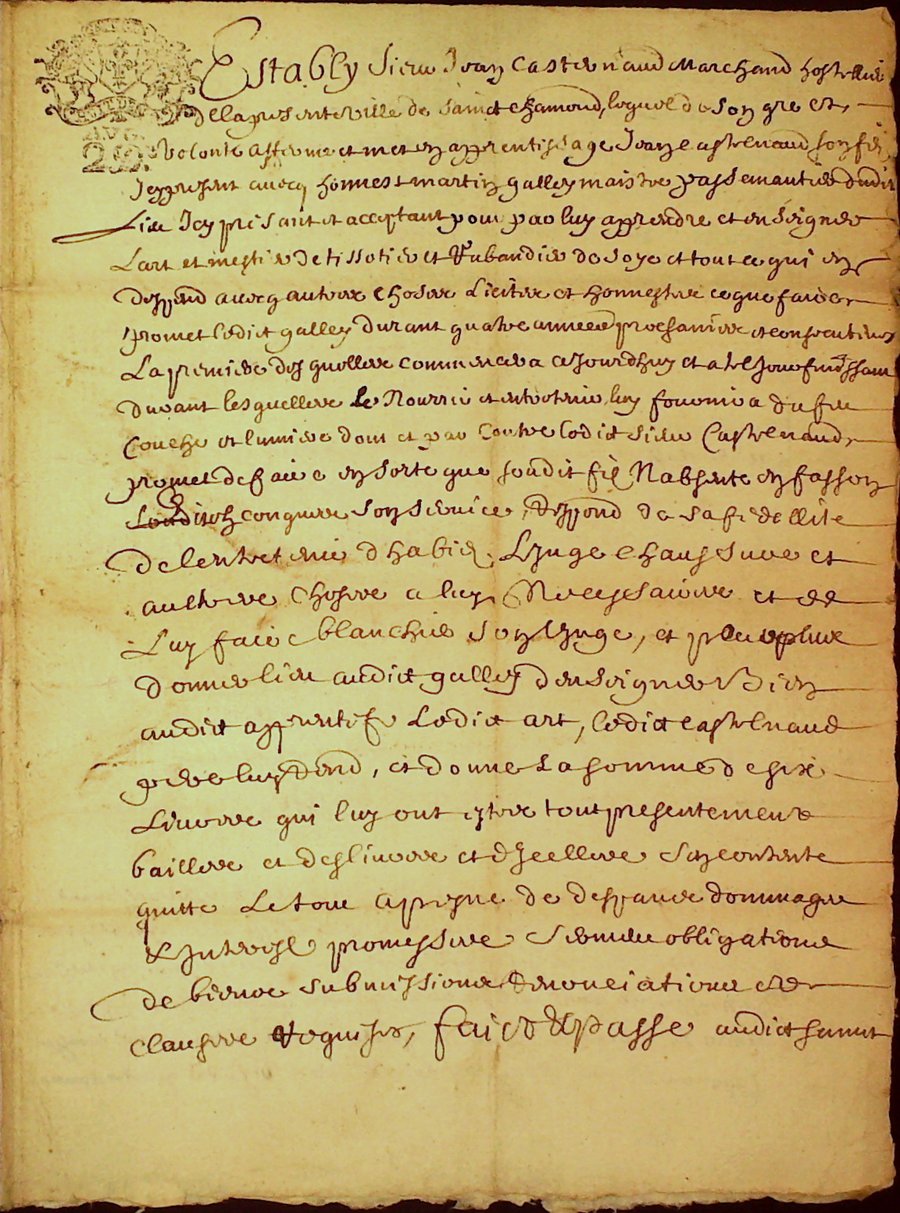 Estably Sieur Jean Castelnaud Marchand hostellier
de la presente ville de Sainct Chamond, lequel de son gre et
volonte afferme et met en apprentissage Jean Castelnaud son fils
Icy present avecq honnest martin galley maistre passemantier dudit
Lieu Icy present et acceptant pour par luy apprendre et enseigner
Lart et mestier de tissotier et Rubandier de soye et tout ce qui en
deppend avecq autres choses Licites et honnestes ce que faire
promet ledict galley durant quatre annees prochaines et consecutives
La premiere des quelles commencera ce jourdhuy et a tel jour finissant
Durant lesquelles le Nourrir et entretenir luy fournira du feu
Couche et lumiere dont et par contre ledict sieur Castelnaud
promet de faire en sorte que sondit fils Nabsente en fasson
quelconque son service, Respond de sa fidellite
de lentretenir dhabis Linge Chaussure et
aultres choses a luy Necessaires et de
Luy faire blanchir son linge, et pour plus
donner lieu audict galley denseigner Bien
audict apprentif Ledict art, ledict Castelnaud
luy donne La somme de six
Livres qui luy ont estes tout presentement
bailles et deslivres et dIcelles sen contente
quitte Le tout a peyne de despans dommages
& Interest promesses obligations
de biens submissions Renonciations et
clauses Requises, faict & passe audict sainct